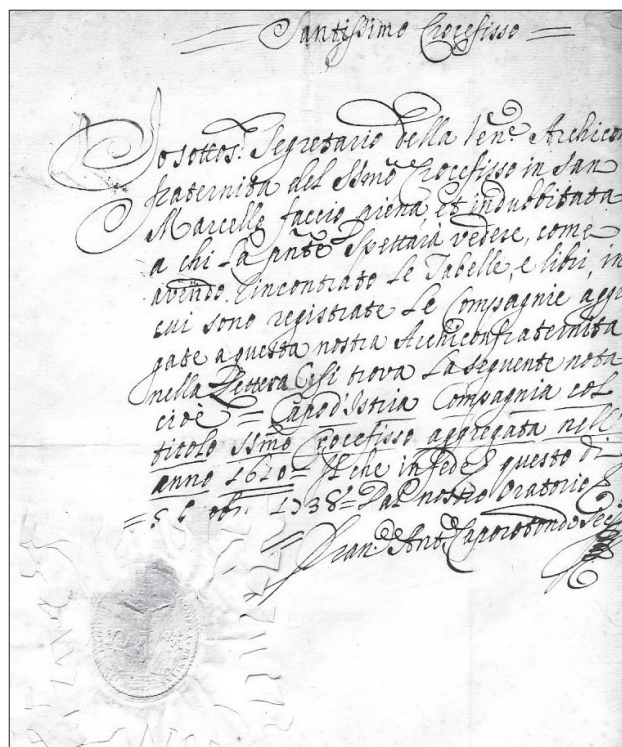 Santissimo Crocefisso
Io sottos.^ Segretario della Ven.e Archicon
fraternita del SSmo Crocefisso in San
Marcello faccio piena, et indubbitata
a chi La pnte Spettarà vedere, come
avendo rincontrato Le Tabelle, e libri, in
cui sono registrate Le Compagnie aggre
gate a questa nostra Archiconfraternita
nella Lettera C si trova La seguente nota
cioè = Capod'Istria Compagnia col
titolo SSmo Crocefisso aggregata nell'
anno 1610 = Il che in fede questo di
= 8bri. 1738 = Dal nostro Oratorio
Fran.o Ant.o Caporotondo Seg.